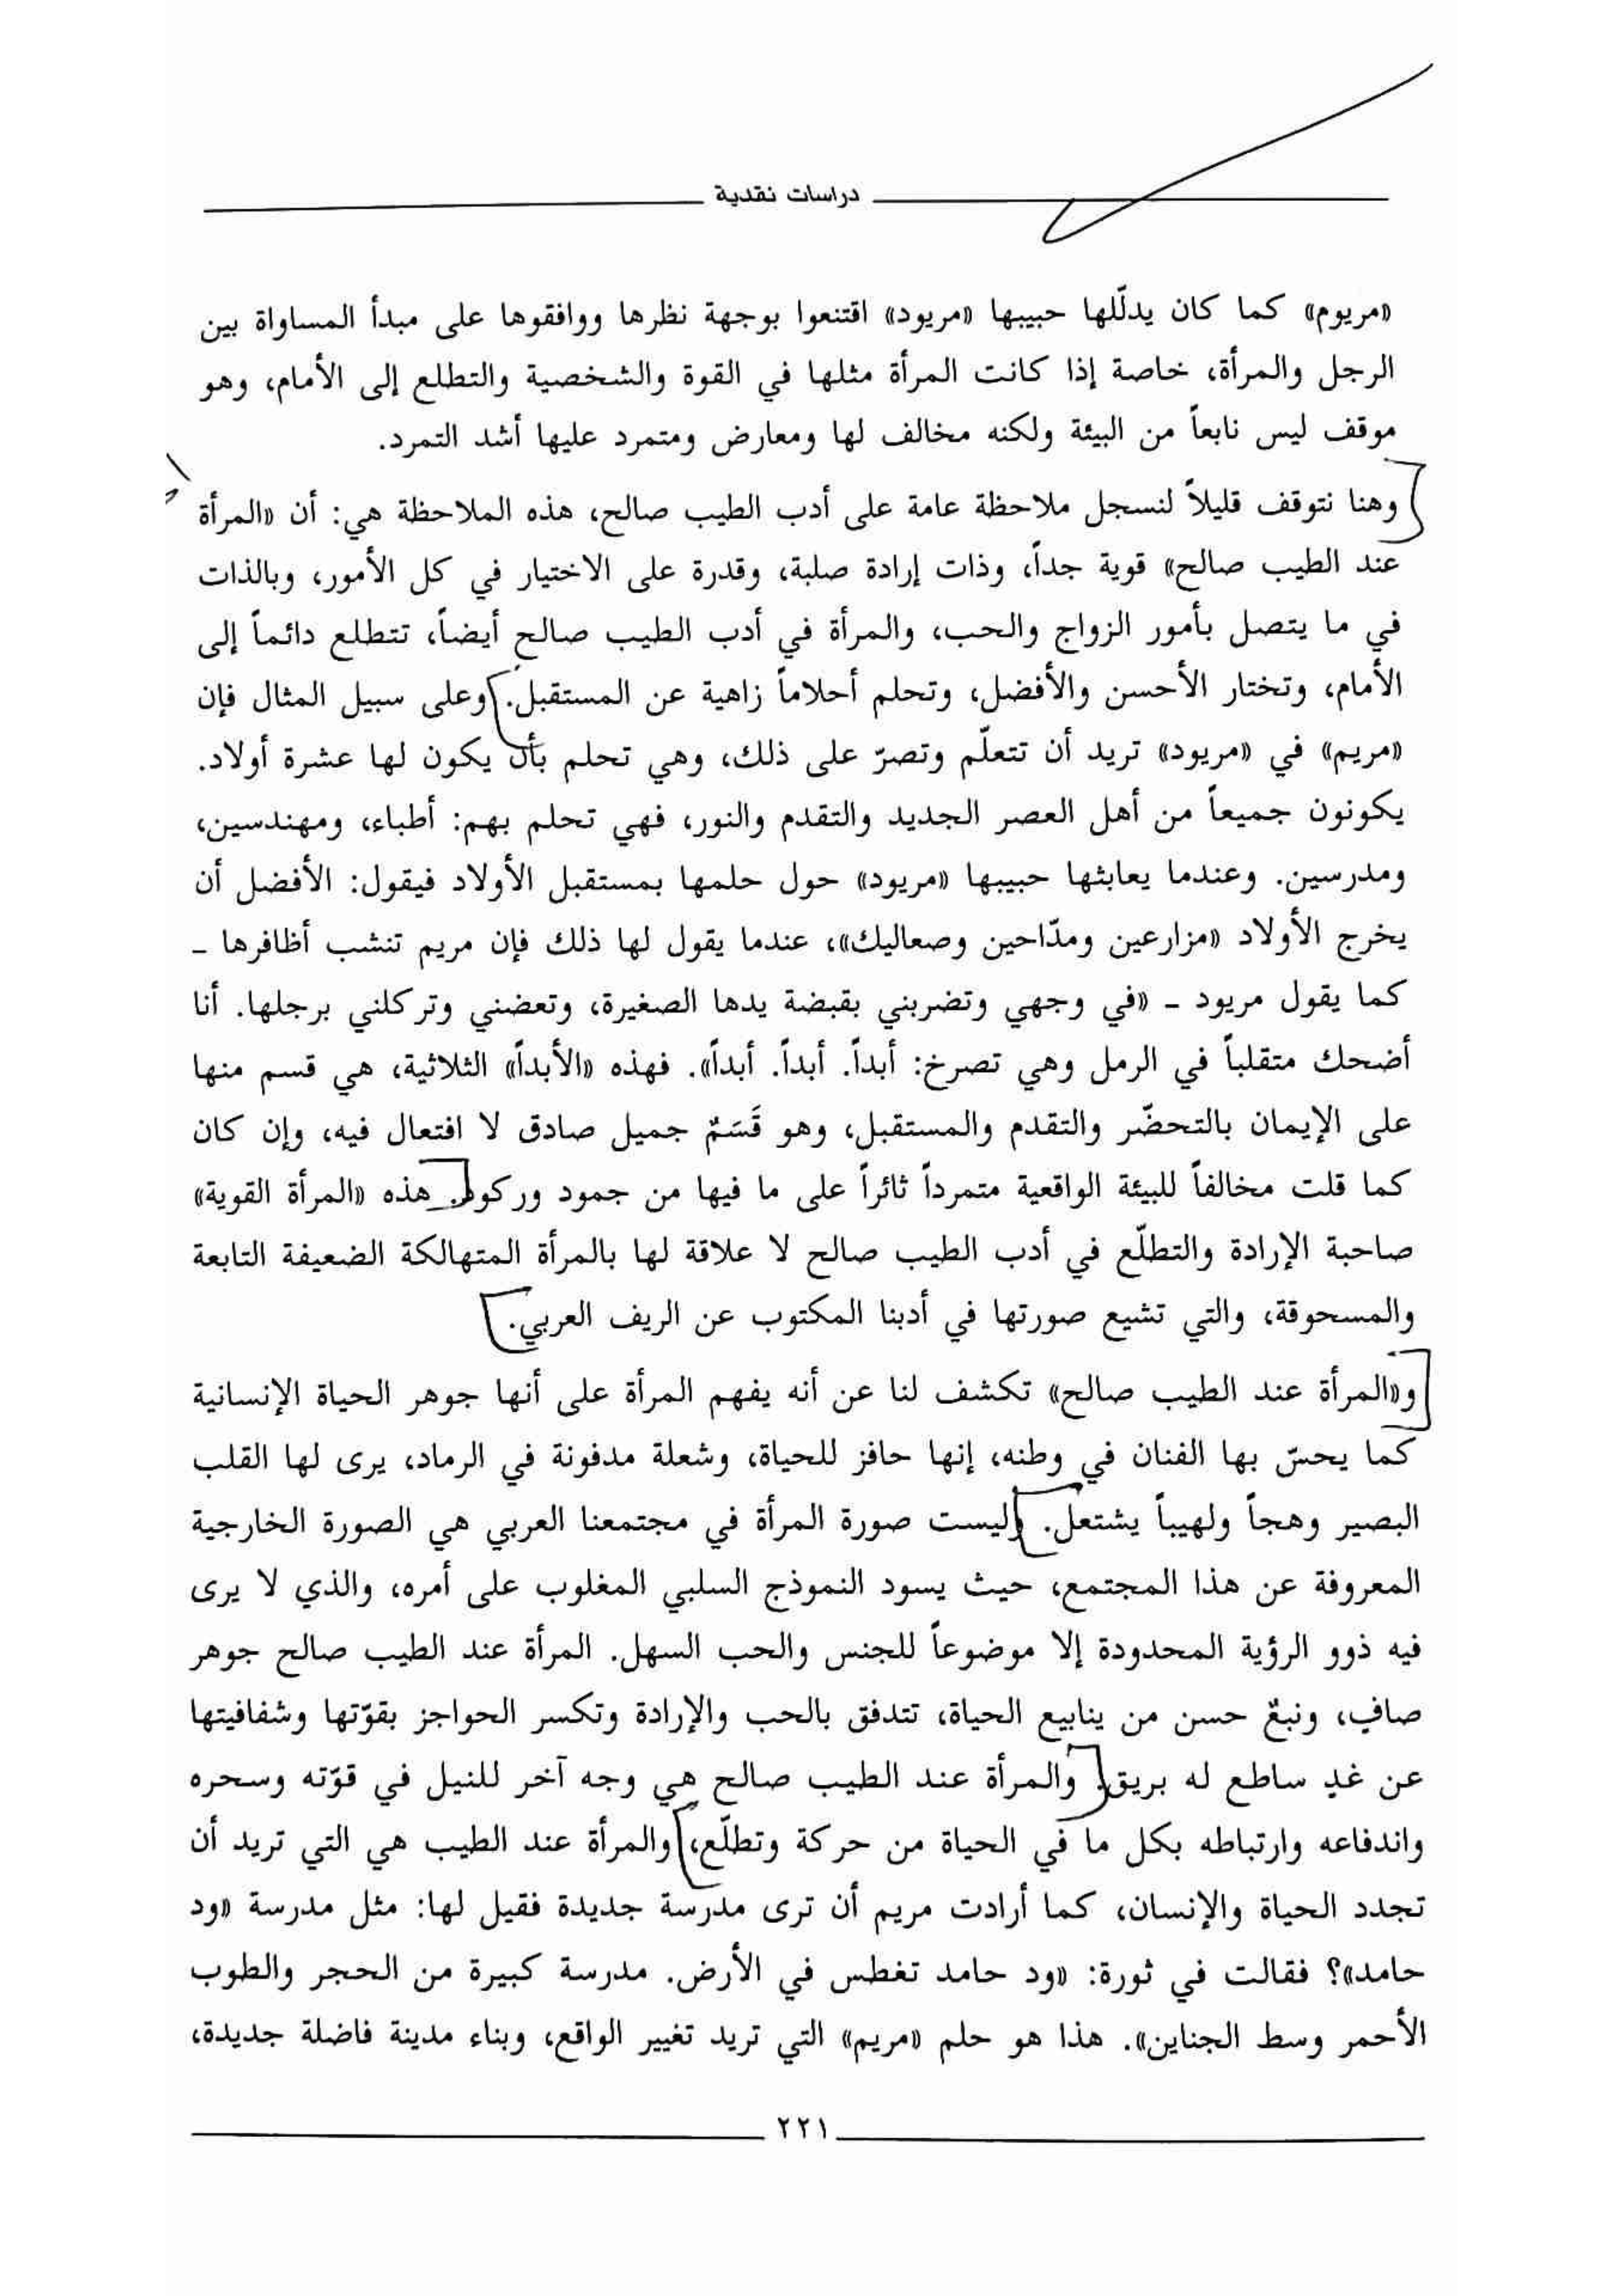 دراسات نقدية
«مريوم» كما كان يدلّلها حبيبها «مريود» اقتنعوا بوجهة نظرها ووافقوها على مبدأ المساواة بين
الرجل والمرأة، خاصة إذا كانت المرأة مثلها في القوة والشخصية والتطلع إلى الأمام، وهو
موقف ليس نابعاً من البيئة ولكنه مخالف لها ومعارض ومتمرد عليها أشد التمرد.
وهنا نتوقف قليلاً لنسجل ملاحظة عامة على أدب الطيب صالح، هذه الملاحظة هي: أن «المرأة
عند الطيب صالح» قوية جداً، وذات إرادة صلبة، وقدرة على الاختيار في كل الأمور، وبالذات
في ما يتصل بأمور الزواج والحب، والمرأة في أدب الطيب صالح أيضاً، تتطلع دائماً إلى
الأمام، وتختار الأحسن والأفضل، وتحلم أحلاماً زاهية عن المستقبل. وعلى سبيل المثال فإن
«مريم» في «مريود» تريد أن تتعلّم وتصرّ على ذلك، وهي تحلم بأن يكون لها عشرة أولاد.
يكونون جميعاً من أهل العصر الجديد والتقدم والنور، فهي تحلم بهم: أطباء، ومهندسين،
ومدرسين. وعندما يعابثها حبيبها «مريود» حول حلمها بمستقبل الأولاد فيقول: الأفضل أن
يخرج الأولاد «مزارعين ومدّاحين وصعاليك»، عندما يقول لها ذلك فإن مريم تنشب أظافرها ـ
كما يقول مريود ـ «في وجهي وتضربني بقبضة يدها الصغيرة، وتعضني وتركلني برجلها. أنا
أضحك متقلباً في الرمل وهي تصرخ: أبداً. أبداً. أبداً». فهذه «الأبداً» الثلاثية، هي قسم منها
على الإيمان بالتحضّر والتقدم والمستقبل، وهو قَسَمٌ جميل صادق لا افتعال فيه، وإن كان
كما قلت مخالفاً للبيئة الواقعية متمرداً ثائراً على ما فيها من جمود وركود. هذه «المرأة القوية»
صاحبة الإرادة والتطلّع في أدب الطيب صالح لا علاقة لها بالمرأة المتهالكة الضعيفة التابعة
والمسحوقة، والتي تشيع صورتها في أدبنا المكتوب عن الريف العربي.
و«المرأة عند الطيب صالح» تكشف لنا عن أنه يفهم المرأة على أنها جوهر الحياة الإنسانية
كما يحسّ بها الفنان في وطنه، إنها حافز للحياة، وشعلة مدفونة في الرماد، يرى لها القلب
البصير وهجاً ولهيباً يشتعل. وليست صورة المرأة في مجتمعنا العربي هي الصورة الخارجية
المعروفة عن هذا المجتمع، حيث يسود النموذج السلبي المغلوب على أمره، والذي لا يرى
فيه ذوو الرؤية المحدودة إلا موضوعاً للجنس والحب السهل. المرأة عند الطيب صالح جوهر
صافٍ، ونبعٌ حسن من ينابيع الحياة، تتدفق بالحب والإرادة وتكسر الحواجز بقوّتها وشفافيتها
عن غدٍ ساطع له بريق. والمرأة عند الطيب صالح هي وجه آخر للنيل في قوّته وسحره
واندفاعه وارتباطه بكل ما في الحياة من حركة وتطلّع، والمرأة عند الطيب هي التي تريد أن
تجدد الحياة والإنسان، كما أرادت مريم أن ترى مدرسة جديدة فقيل لها: مثل مدرسة «ود
حامد»؟ فقالت في ثورة: «ود حامد تغطس في الأرض. مدرسة كبيرة من الحجر والطوب
الأحمر وسط الجناين». هذا هو حلم «مريم» التي تريد تغيير الواقع، وبناء مدينة فاضلة جديدة،
٢٢١